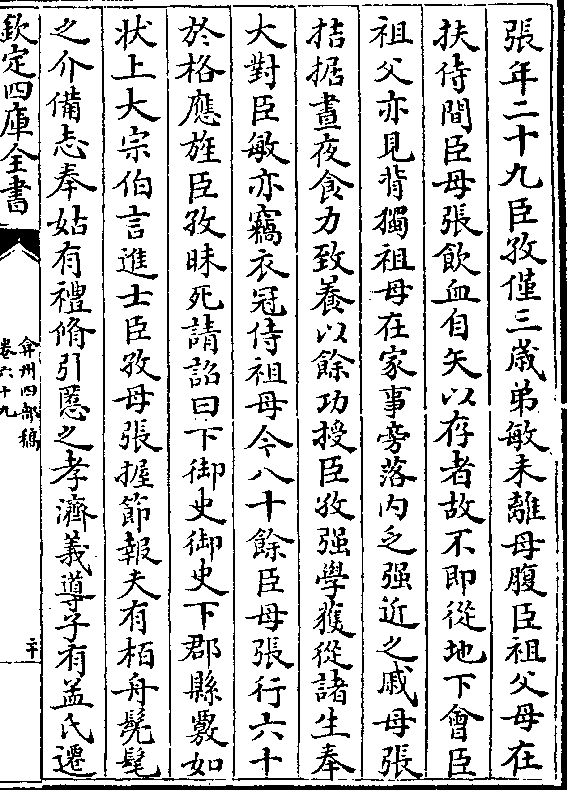 張年二十九臣孜僅三歲弟敏未離母腹臣祖父母在
扶侍間臣母張飲血自矢以存者故不即從地下會臣
祖父亦見背獨祖母在家事旁落内乏强近之戚母張
拮据晝夜食力致養以餘功授臣孜强學獲從諸生奉
大對臣敏亦竊衣冠侍祖母今八十餘臣母張行六十
於格應旌臣孜昧死請詔曰下御史御史下郡縣覈如
状上大宗伯言進士臣孜母張握節報夫有栢舟髡髦
之介備志奉姑有禮脩引慝之孝濟義導子有孟氏遷
欽定四庫全書
弇州四部稿
卷六十九
二十